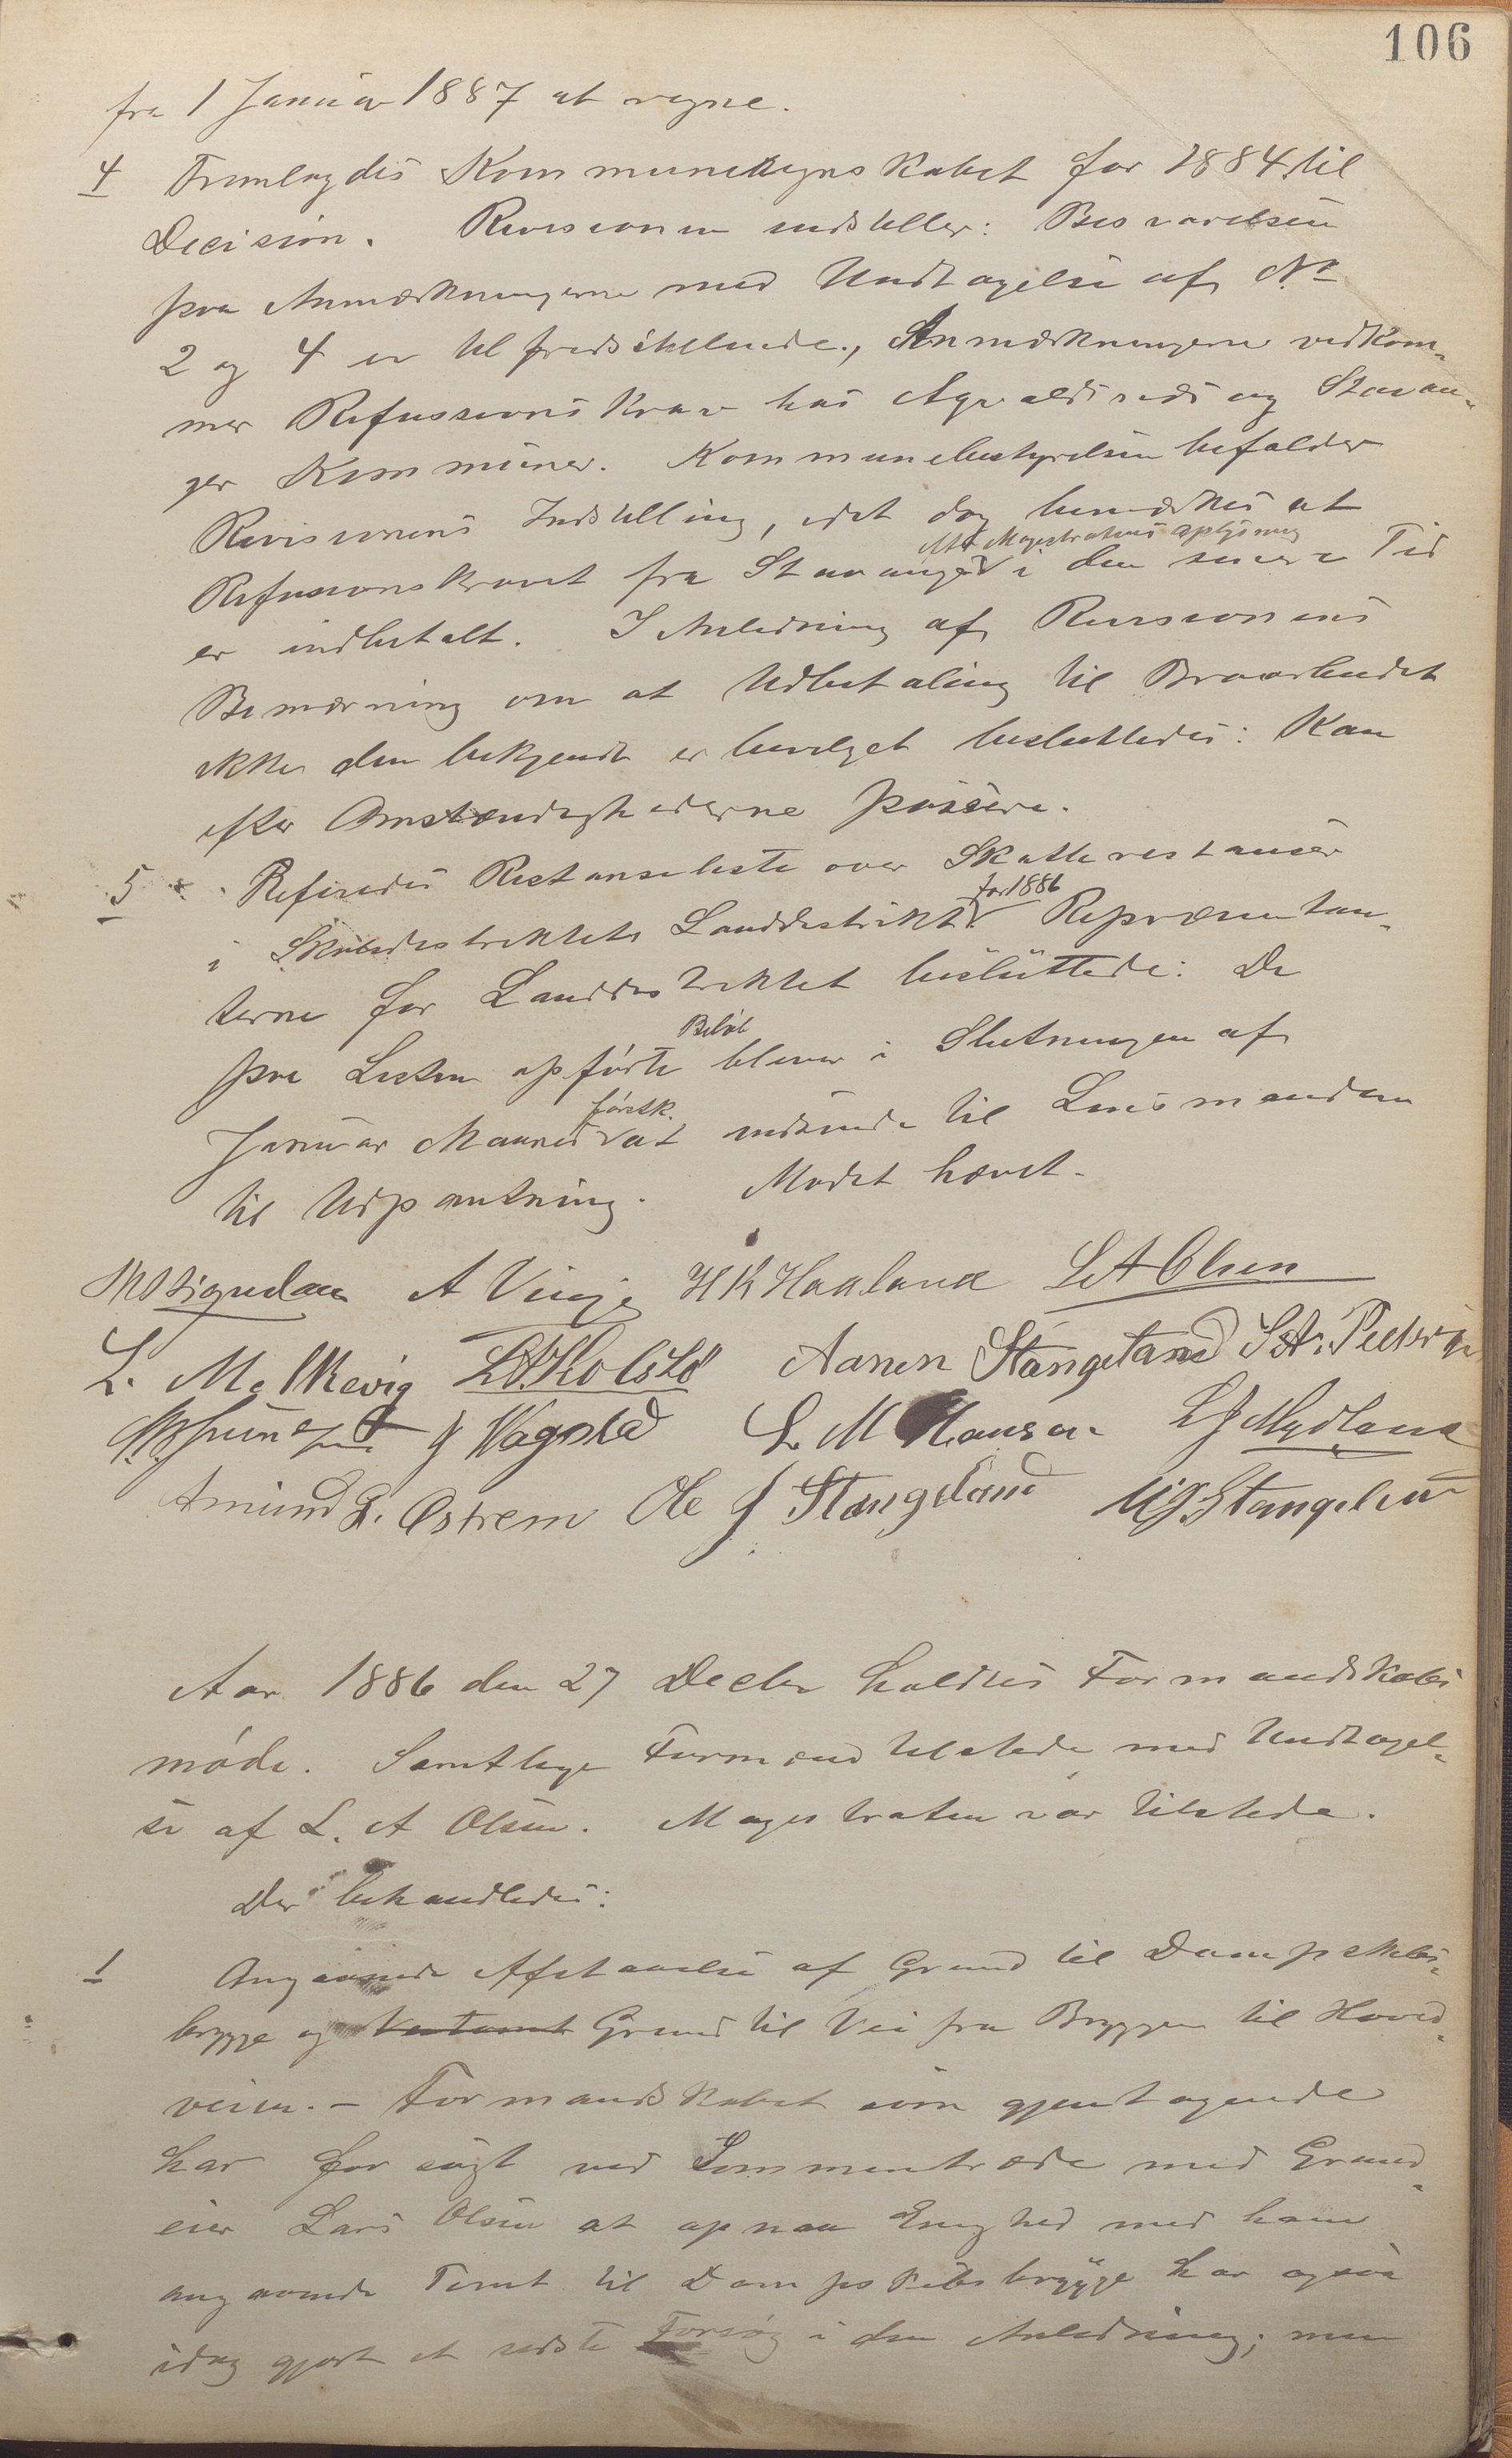 106
fra 1 Januar 1887 at regne.
4 Fremlagdes Kommuneregnskabet for 1884 til
Decision. Revisionen indstiller: Besvarelsen
paa Anmærkningerne med Undtagelse af No
2 og 4 er tilfredsstillende., Anmærkningerne vedkom-
mer Refussionskrav hos Agvaldsnæs og Stavan-
ger Kommuner. Kommunebestyrelsen bifalder
Revisionens Indstilling, idet dog bemærkes at
efter Magistratens Oplysning
Refusionskravet fra Stavanger i den senere Tid
er indbetalt. I Anledning af Revisionens
Bemærning om at Udbetaling til
ikke den bekjendt er bevilget besluttedes: Kan
efter Omstændighederne passere.
5 Refiredes Restanseliste over Skatterestanser
for 1886
i Skoledistriktets Landdistrikt. Repræsentan-
terne for Landdistriktet besluttede: De
Beløb
paa Listen opførte bliver i Slutningen af
førstk.
Januar Maaned at indsende til Lensmanden
til Udpantning. Mødet hævet.
A Vinje H K Haaland L A Olsen
L. Medhaug L.A. Kolstø Aanen Stangeland
J Vagsted L. M Hansen L J Mydland
Amund L. Østrem Ole J Stangeland M J Stangeland
Aar 1886 den 27 Decbr holdtes Formandskabs
møde. Samtlige Formænd tilstede med Undtagel-
se af L. A Olsen. Magistraten var tilstede.
Der behandledes:
1 Angaaende Afstaaelse af Grund til Dampskibs-
brygge og Grund til Vei fra Bryggen til Hoved-
veien. – Formandskabet som gjentagende
har forsøgt ved Sammentræde med Grund-
eier Lars Olsen at opnaa Enighed med ham
angaaende Tomt til Dampskibsbrygge har ogsaa
idag gjort et sidste Forsøg i den Anledning; men